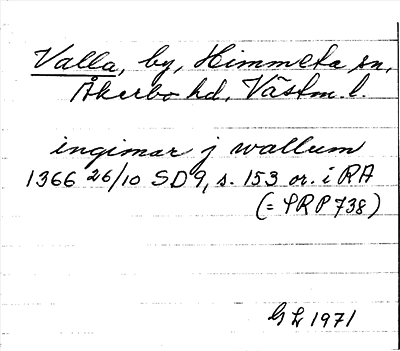 Valla, by, Himmeta sn,
Åkerbo hd, Västm. l.
ingimar j wallum
1366 26/10 SD 9, s. 153 or. i RA
(= SRP 738)
G L 1971